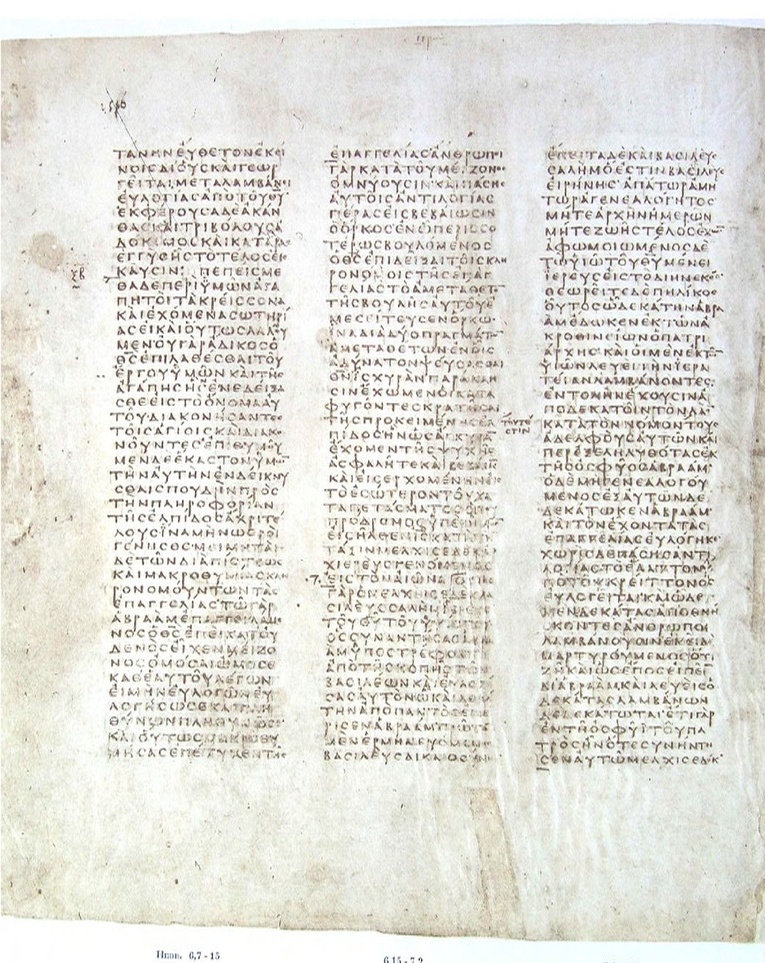 ΤΑΝΗΝΕΥΘΕΤΟΝΕΚΕΙ
ΝΟΙCΔΙΟΥCΚΑΙΓΕΩΡ
ΓΕΙΤΑΙΜΕΤΑΛΑΜΒΑΝΕΙ
ΕΥΛΟΓΙΑCΑΠΟΤΟΥΘΥ
ΕΚΦΕΡΟΥCΑΔΕΑΚΑΝ
ΘΑCΚΑΙΤΡΙΒΟΛΟΥCΑ
ΔΟΚΙΜΟCΚΑΙΚΑΤΑΡΑC
ΕΓΓΥCΗCΤΟΤΕΛΟCΕΙC
ΚΑΥCΙΝ ΠΕΠΕΙCΜΕ
ΘΑΔΕΠΕΡΙΥΜΩΝΑΓΑ
ΠΗΤΟΙΤΑΚΡΕΙCCΟΝΑ
ΚΑΙΕΧΟΜΕΝΑCΩΤΗΡΙ
ΑCΕΙΚΑΙΟΥΤΩCΛΑΛΟΥ
ΜΕΝΟΥΓΑΡΑΔΙΚΟCΟ
ΘCΕΠΙΛΑΘΕCΘΑΙΤΟΥ
ΕΡΓΟΥΥΜΩΝΚΑΙΤΗC
ΑΓΑΠΗCΗCΕΝΕΔΕΙΞΑ
CΘΕΕΙCΤΟΟΝΟΜΑΑΥ
ΤΟΥΔΙΑΚΟΝΗCΑΝΤΕC
ΤΟΙCΑΓΙΟΙCΚΑΙΔΙΑΚΟ
ΝΟΥΝΤΕCΕΠΙΘΥΜΟΥ
ΜΕΝΔΕΕΚΑCΤΟΝΥΜΩ
ΤΗΝΑΥΤΗΝΕΝΔΕΙΚΝΥ
CΘΑΙCΠΟΥΔΗΝΠΡΟC
ΤΗΝΠΛΗΡΟΦΟΡΙΑΝ
ΤΗCΕΛΠΙΔΟCΑΧΡΙΤΕ
ΛΟΥCΙΝΑΜΗΝΩΘΡΟΙ
ΓΕΝΗCΘΕΜΕΙΜΗΤΑΙ
ΔΕΤΩΝΔΙΑΠΙCΤΕΩC
ΚΑΙΜΑΚΡΟΘΥΜΙΑCΚΛΗ
ΡΟΝΟΜΟΥΝΤΩΝΤΑC
ΕΠΑΓΓΕΛΙΑCΤΩΓΑΡ
ΑΒΡΑΑΜΕΠΑΓΓΕΙΛΑΜΕ
ΝΟCΟΘCΕΠΕΙΚΑΤΟΥ
ΔΕΝΟCΕΙΧΕΝΜΕΙΖΟ
ΝΟCΟΜΟCΑΙΩΜΟCΕ
ΚΑΘΕΑΥΤΟΥΛΕΓΩΝ
ΕΙΜΗΝΕΥΛΟΓΩΝΕΥ
ΛΟΓΗCΩCΕΚΑΙΠΛΗ
ΘΥΝΩΝΠΛΗΘΥΝΩCΕ
ΚΑΙΟΥΤΩCΜΑΚΡΟΘΥ
ΜΗCΑCΕΠΕΤΥΧΕΝΤΗC
ΕΠΑΓΓΕΛΙΑCΑΝΘΡΩΠΟΙ
ΓΑΡΚΑΤΑΤΟΥΜΕΙΖΟΝΟC
ΟΜΝΥΟΥCΙΝΚΑΙΠΑCΗC
ΑΥΤΟΙCΑΝΤΙΛΟΓΙΑC
ΠΕΡΑCΕΙCΒΕΒΑΙΩCΙΝ
ΟΟΡΚΟCΕΝΩΠΕΡΙCCΟ
ΤΕΡΩCΒΟΥΛΟΜΕΝΟC
ΟΘCΕΠΙΔΕΙΞΑΙΤΟΙCΚΛΗ
ΡΟΝΟΜΟΙCΤΗCΕΠΑΓ
ΓΕΛΙΑCΤΟΑΜΕΤΑΘΕΤΟ
ΤΗCΒΟΥΛΗCΑΥΤΟΥΕ
ΜΕCΕΙΤΕΥCΕΝΟΡΚΩ
ΙΝΑΔΙΑΔΥΟΠΡΑΓΜΑΤΩ
ΑΜΕΤΑΘΕΤΩΝΕΝΟΙC
ΑΔΥΝΑΤΟΝΨΕΥCΑCΘΑΙ
ΘΝΙCΧΥΡΑΝΠΑΡΑΚΛΗ
CΙΝΕΧΩΜΕΝΟΙΚΑΤΑ
ΦΥΓΟΝΤΕCΚΡΑΤΗCΑΙ
ΤΗCΠΡΟΚΕΙΜΕΝΗCΕΛ
ΠΙΔΟCΗΝΩCΑΓΚΥΡΑΝ
ΕΧΟΜΕΝΤΗCΨΥΧΗC
ΑCΦΑΛΗΤΕΚΑΙΒΕΒΑΙΑΝ
ΚΑΙΕΙCΕΡΧΟΜΕΝΗΝΕΙC
ΤΟΕCΩΤΕΡΟΝΤΟΥΚΑ
ΤΑΠΕΤΑCΜΑΤΟCΟΠΟΥ
ΠΡΟΔΡΟΜΟCΥΠΕΡΗΜΩ
ΕΙCΗΛΘΕΝΙCΚΑΤΑΤΗ
ΤΑΞΙΝΜΕΛΧΙCΕΔΕΚΑΡ
ΧΙΕΡΕΥCΓΕΝΟΜΕΝΟC
ΕΙCΤΟΝΑΙΩΝΑΟΥΤΟC
ΓΑΡΟΜΕΛΧΙCΕΔΕΚΒΑ
CΙΛΕΥCCΑΛΗΜΙΕΡΕΥC
ΤΟΥΘΥΤΟΥΥΨΙCΤΟΥ
ΟCCΥΝΑΝΤΗCΑCΑΒΡΑ
ΑΜΥΠΟCΤΡΕΦΟΝΤΙ
ΑΠΟΤΗCΚΟΠΗCΤΩΝ
ΒΑCΙΛΕΩΝΚΑΙΕΥΛΟΓΗ
CΑCΑΥΤΟΝΩΚΑΙΔΕΚΑ
ΤΗΝΑΠΟΠΑΝΤΩΝΕΜΕ
ΡΙCΕΝΑΒΡΑΑΜΠΡΩΤΟ
ΜΕΝΕΡΜΗΝΕΥΟΜΕΝΟC
ΒΑCΙΛΕΥCΔΙΚΑΙΟCΥΝΗC
ΤΟΥΤΕ
CΤΙΝ
ΕΠΕΙΤΑΔΕΚΑΙΒΑCΙΛΕΥC
CΑΛΗΜΟΕCΤΙΝΒΑCΙΛΕΥC
ΕΙΡΗΝΗCΑΠΑΤΩΡΑΜΗ
ΤΩΡΑΓΕΝΕΑΛΟΓΗΤΟC
ΜΗΤΕΑΡΧΗΝΗΜΕΡΩΝ
ΜΗΤΕΖΩΗCΤΕΛΟCΕΧΩ
ΑΦΩΜΟΙΩΜΕΝΟCΔΕ
ΤΩΥΙΩΤΟΥΘΥΜΕΝΕΙ
ΙΕΡΕΥCΕΙCΤΟΔΙΗΝΕΚΕC
ΘΕΩΡΕΙΤΕΔΕΠΗΛΙΚΟC
ΟΥΤΟCΩΔΕΚΑΤΗΝΑΒΡΑ
ΑΜΕΔΩΚΕΝΕΚΤΩΝΑ
ΚΡΟΘΙΝΕΙΩΝΟΠΑΤΡΙ
ΑΡΧΗCΚΑΙΟΙΜΕΝΕΚΤΩ
ΥΙΩΝΛΕΥΕΙΤΗΝΙΕΡΑ
ΤΕΙΑΝΛΑΜΒΑΝΟΝΤΕC
ΕΝΤΟΛΗΝΕΧΟΥCΙΝΑ
ΠΟΔΕΚΑΤΟΙΝΤΟΝΛΑΟ
ΚΑΤΑΤΟΝΝΟΜΟΝΤΟΥC
ΑΔΕΛΦΟΥCΑΥΤΩΝΚΑΙ
ΠΕΡΕΞΕΛΗΛΥΘΟΤΑCΕΚ
ΤΗCΟCΦΥΟCΑΒΡΑΑΜ
ΟΔΕΜΗΓΕΝΕΑΛΟΓΟΥ
ΜΕΝΟCΕΞΑΥΤΩΝΔΕ
ΔΕΚΑΤΩΚΕΝΑΒΡΑΑΜ
ΚΑΙΤΟΝΕΧΟΝΤΑΤΑC
ΕΠΑΓΓΕΛΙΑCΕΥΛΟΓΗΚΕ
ΧΩΡΙCΔΕΠΑCΗCΑΝΤΙ
ΛΟΓΙΑCΤΟΕΛΑΤΤΟΝΥ
ΠΟΤΟΥΚΡΕΙΤΤΟΝΟC
ΕΥΛΟΓΕΙΤΑΙΚΑΙΩΔΕ
ΜΕΝΔΕΚΑΤΑCΑΠΟΘΝΗ
CΚΟΝΤΕCΑΝΘΡΩΠΟΙ
ΛΑΜΒΑΝΟΥCΙΝΕΚΕΙΔΕ
ΜΑΡΤΥΡΟΥΜΕΝΟCΟΤΙ
ΖΗΚΑΙΩCΕΠΟCΕΙΠΕΙ
ΔΙΑΒΡΑΑΜΚΑΙΛΕΥΕΙCΟ
ΔΕΚΑΤΑCΛΑΜΒΑΝΩΝ
ΔΕΔΕΚΑΤΩΤΑΙΕΤΙΓΑΡ
ΕΝΤΗΟCΦΥΙΤΟΥΠΑ
ΤΡΟCΗΝΟΤΕCΥΝΗΝΤΗ
CΕΝΑΥΤΩΜΕΛΧΙCΕΔΕΚ
6,7 - 15
6,15 - 7,2